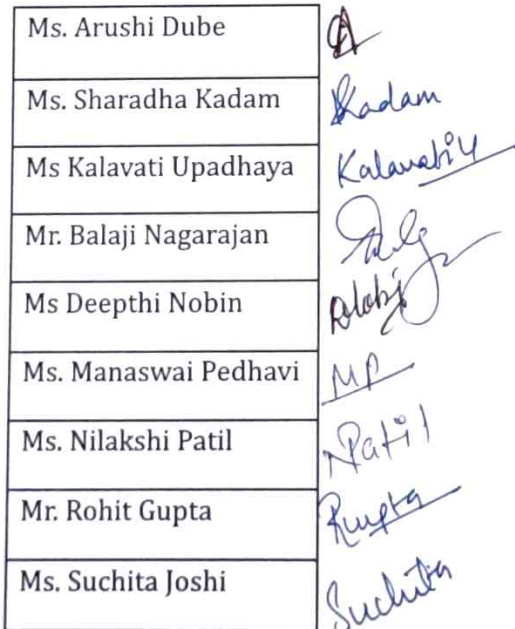 Ms. Arushi Dube
Ms. Sharadha Kadam Kadam
Ms Kalavati Upadhaya Kalavati U
Mr. Balaji Nagarajan
Ms Deepthi Nobin
Ms. Manaswai Pedhavi MP
Ms. Nilakshi Patil NPatil
Mr. Rohit Gupta RGupta
Ms. Suchita Joshi Suchita